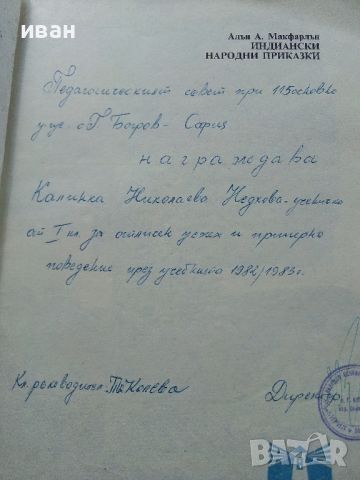 Алън А. Макфарлън
ИНДИАНСКИ
НАРОДНИ ПРИКАЗКИ
Педагогическият съвет при 115 основно
у-ще "Г. Боров - София
награждава
Калинка Николаева Недкова - ученичка
от I кл. за отличен успех и примерно
поведение през учебната 1982/1983 г.
Кл. ръководител: Колева
Директор:
BAZAR